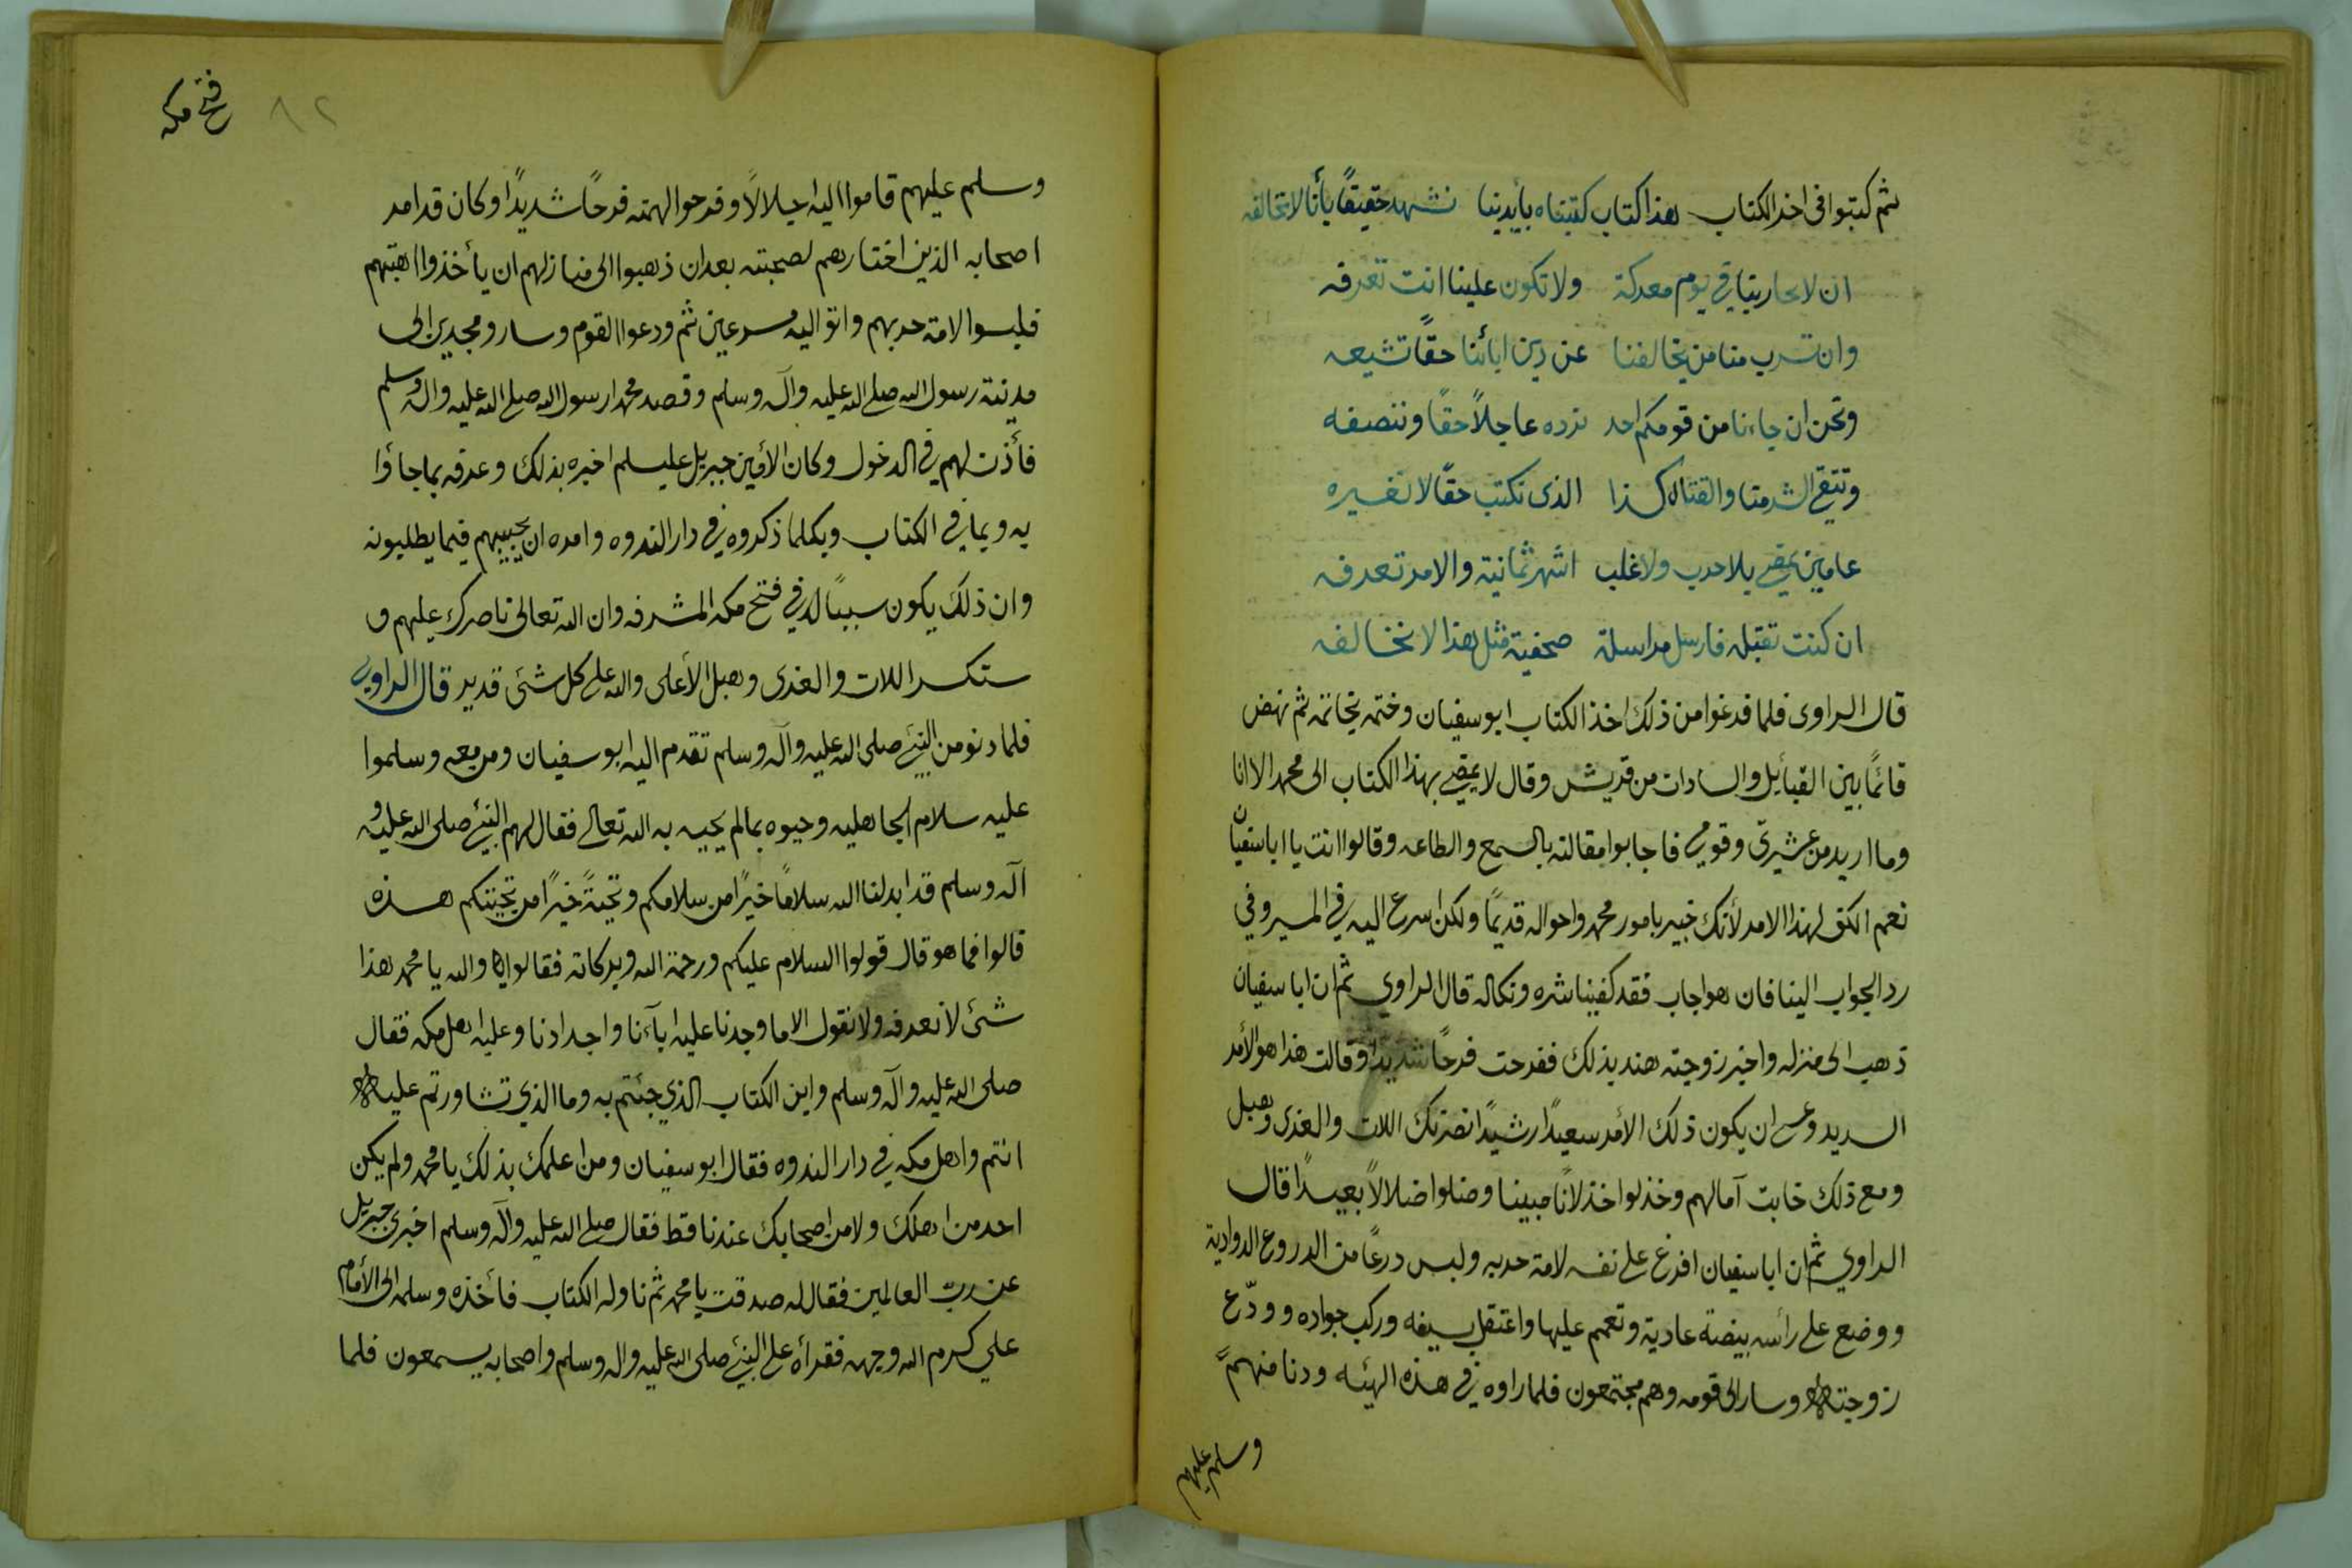 ثم كتبوا فى اخر الكتاب هذا كتاب كتبناه بأيدينا نشهد حقيقًا بأنا لا نخالفه
ان لا تحاربنا في يوم معركة ولا تكون علينا انت تعرفه
وان تسرب منا من يخالفنا عن دين ابائنا حقًا تشيعه
ونحن ان جاءنا من قومكم احد نرده عاجلاً حقًا وننصفه
وتتقي الشر منا والقتال كذا الذى نكتب حقًا لا نغيره
عامين تمضي بلا حرب ولا غلب اشهر ثمانية والامر تعرفه
ان كنت تقبله فارسل مراسلة صحفية مثل هذا لا نخالفه
قال الراوى فلما فرغوا من ذلك اخذ الكتاب ابو سفيان وختمه بخاتمه ثم نهض
قائمًا بين القبائل والسادات من قريش وقال لا يمضي بهذا الكتاب الى محمد الا انا
وما اريد من عشيرتى وقومي فاجابوا مقالته بالسمع والطاعه وقالوا انت يا ابا سفيان
نعم الكفو لهذا الامر لأنك خبير بامور محمد واحواله قديمًا ولكن اسرع اليه في المسير وفي
رد الجواب الينا فان هو اجاب فقد كفينا شره ونكاله قال الراوي ثم ان ابا سفيان
ذهب الى منزله واخبر زوجته هند بذلك ففرحت فرحًا شديدًا وقالت هذا هو الأمر
السديد وعسى ان يكون ذلك الأمر سعيدًا رشيدًا نصرتك اللات والعزى وهبل
ومع ذلك خابت آمالهم وخذلوا خذلانًا مبينا وضلوا ضلالاً بعيدًا قال
الراوي ثم ان ابا سفيان افرغ على نفسه لامة حربه ولبس درعًا من الدروع الداودية
ووضع على رأسه بيضة عادية وتعمم عليها واعتقل بسيفه وركب جواده وودّع
زوجته وسار الى قومه وهم مجتمعون فلما راوه في هذه الهيئه ودنا منهم
وسلم عليهم
فتح مكه
٨٢
وسلم عليهم قاموا اليه اجلالاً وفرحوا لهمته فرحًا شديدًا وكان قد امر
اصحابه الذين اختارهم لصحبته بعد ان ذهبوا الى منازلهم ان يأخذوا اهبتهم
فلبسوا لامة حربهم واتوا اليه مسرعين ثم ودعوا القوم وسارو مجدين الى
مدينة رسول الله صلى الله عليه وآله وسلم وقصد محمدا رسول الله صلى الله عليه واله وسلم
فأذن لهم في الدخول وكان الأمين جبريل عليسلم اخبره بذلك وعرفه بما جاؤا
به وبما في الكتاب وبكلما ذكروه في دار الندوه وامره ان يجيبهم فيما يطلبونه
وان ذلك يكون سببًا له في فتح مكه المشرفه وان الله تعالى ناصرك عليهم و
ستكسر اللات والعزى وهبل الأعلى والله على كل شئ قدير قال الراوي
فلما دنو من النبي صلى الله عليه وآله وسلم تقدم اليه ابو سفيان ومن معه وسلموا
عليه سلام الجاهليه وحيوه بما لم يحييه به الله تعالى فقال لهم النبي صلى الله عليه و
آله وسلم قد ابدلنا الله سلامًا خيرًا من سلامكم وتحيةً خيرًا من تحيتكم هذه
قالوا فما هو قال قولوا السلام عليكم ورحمة الله وبركاته فقالوا لا والله يا محمد هذا
شئ لا نعرفه ولا نقول الا ما وجدنا عليه ابآءنا واجدادنا وعليه اهل مكه فقال
صلى الله عليه وآله وسلم واين الكتاب الذي جئتم به وما الذي تشاورتم عليه
انتم واهل مكه في دار الندوه فقال ابو سفيان ومن اعلمك بذلك يا محمد ولم يكن
احد من اهلك ولا من اصحابك عندنا قط فقال صلى الله عليه وآله وسلم اخبرنى جبريل
عن رب العالمين فقال له صدقت يا محمد ثم ناوله الكتاب فأخذه وسلمه الى الأمام
علي كرم الله وجهه فقرأه على النبي صلى الله عليه واله وسلم واصحابه يسمعون فلما